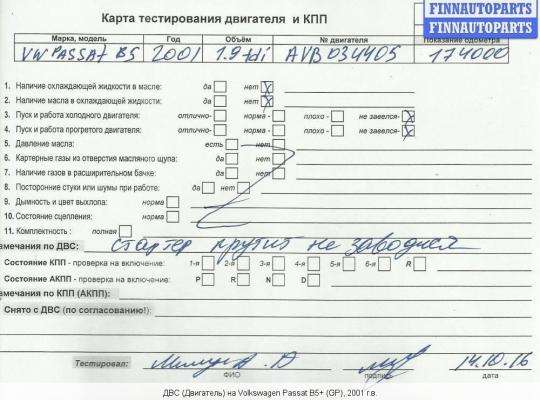 FINNAUTOPARTS
FINNAUTOPARTS
FINNAUTOPARTS
Карта тестирования двигателя и КПП
Марка, модель Год Объём № двигателя Показание одометра
VW PASSAT B5 2001 1.9 tdi AVB 034405 174000
1. Наличие охлаждающей жидкости в масле: да нет X
2. Наличие масла в охлаждающей жидкости: да нет X
3. Пуск и работа холодного двигателя: отлично- норма - плохо - не завелся- X
4. Пуск и работа прогретого двигателя: отлично- норма - плохо - не завелся- X
5. Давление масла: есть нет
6. Картерные газы из отверстия масляного щупа: да нет
7. Наличие газов в расширительном бачке: да нет
8. Посторонние стуки или шумы при работе: да нет
9. Дымность и цвет выхлопа: норма
10. Состояние сцепления: норма
11. Комплектность : полная
емечания по ДВС: стартер крутит не заводися
Состояние КПП - проверка на включение: 1-я 2-я 3-я 4-я 5-я 6-я R
Состояние АКПП - проверка на включение: P R N D
емечания по КПП (АКПП):
Снято с ДВС (по согласованию!):
Тестировал: 14.10.16
ФИО подпись дата
ДВС (Двигатель) на Volkswagen Passat B5+ (GP), 2001 г.в.